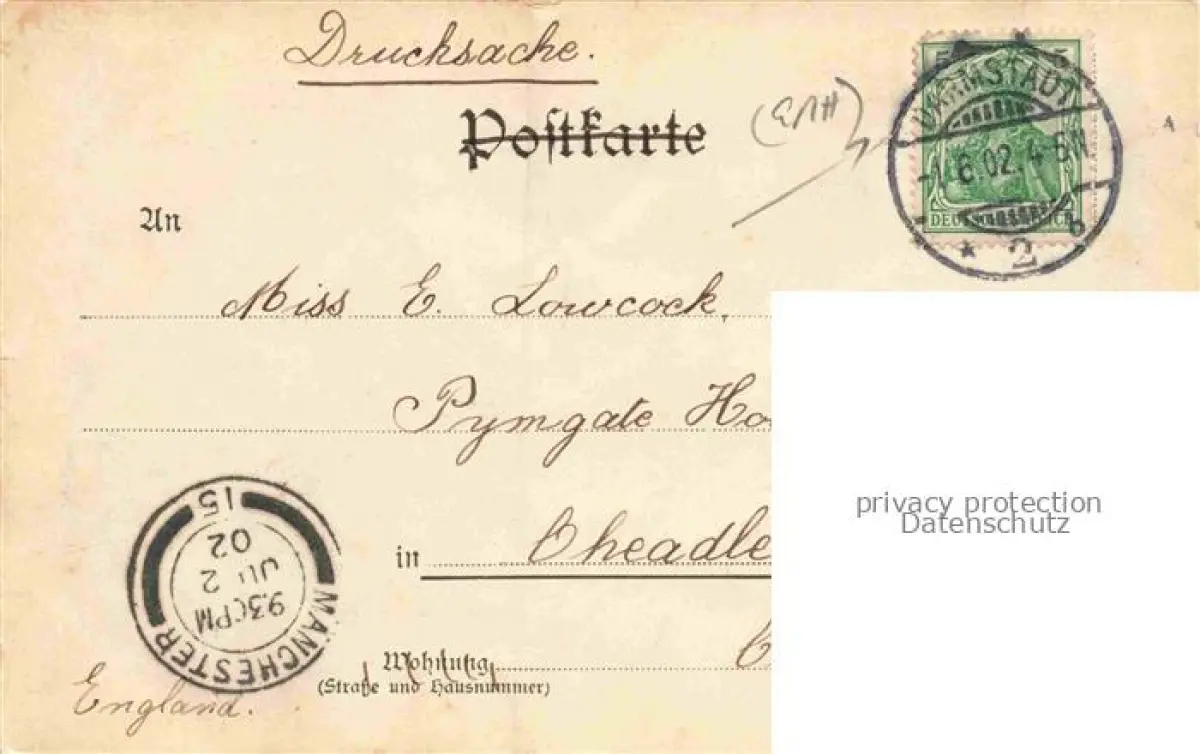 Drucksache.
Postkarte
5 5
DARMSTADT
-1.6.02. 4-5N.
* 2 b
DEUTSCHES REICH
An
Miss E. Lowcock,
Pymgate
in Cheadle
Wohnung
(Straße und Hausnummer)
England.
MANCHESTER
9.30PM
2
02
15
privacy protection
Datenschutz